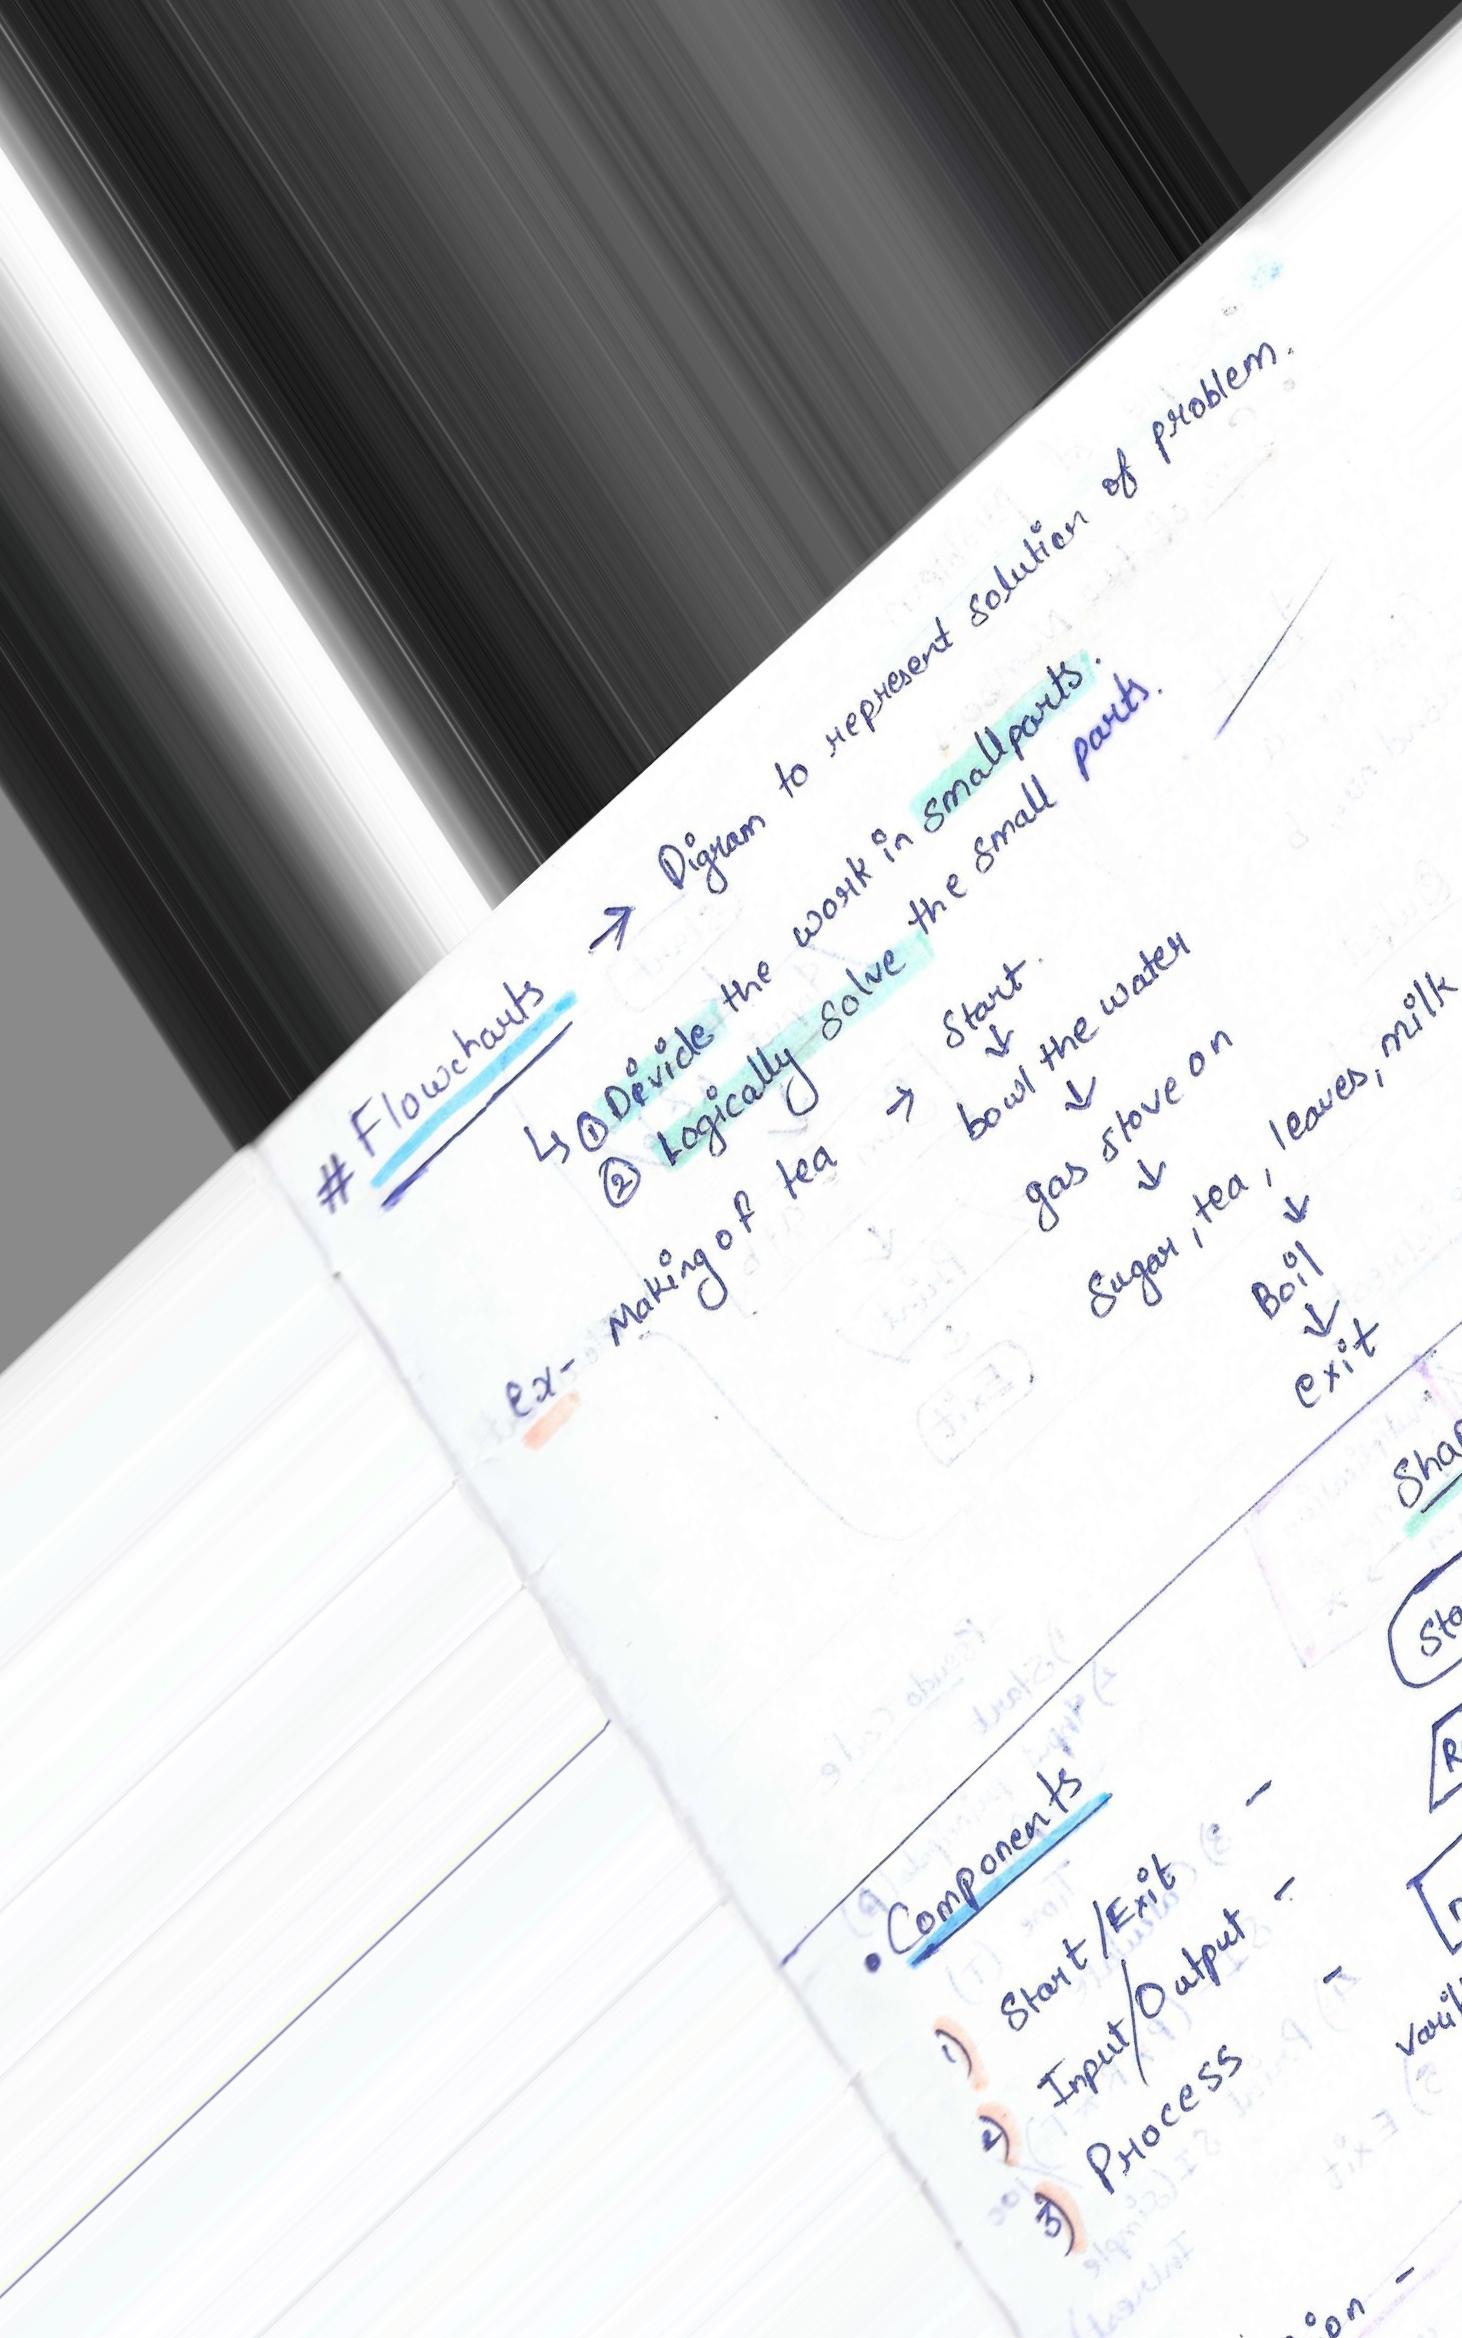 # Flowcharts → Digram to represent solution of problem.
↳ ① Devide the work in small parts.
② Logically solve the small parts.
ex- Making of tea → Start.
↓
bowl the water
↓
gas stove on
↓
Sugar, tea, leaves, milk
↓
Boil
↓
exit
• Components
1) Start/Exit -
2) Input/Output -
3) Process -